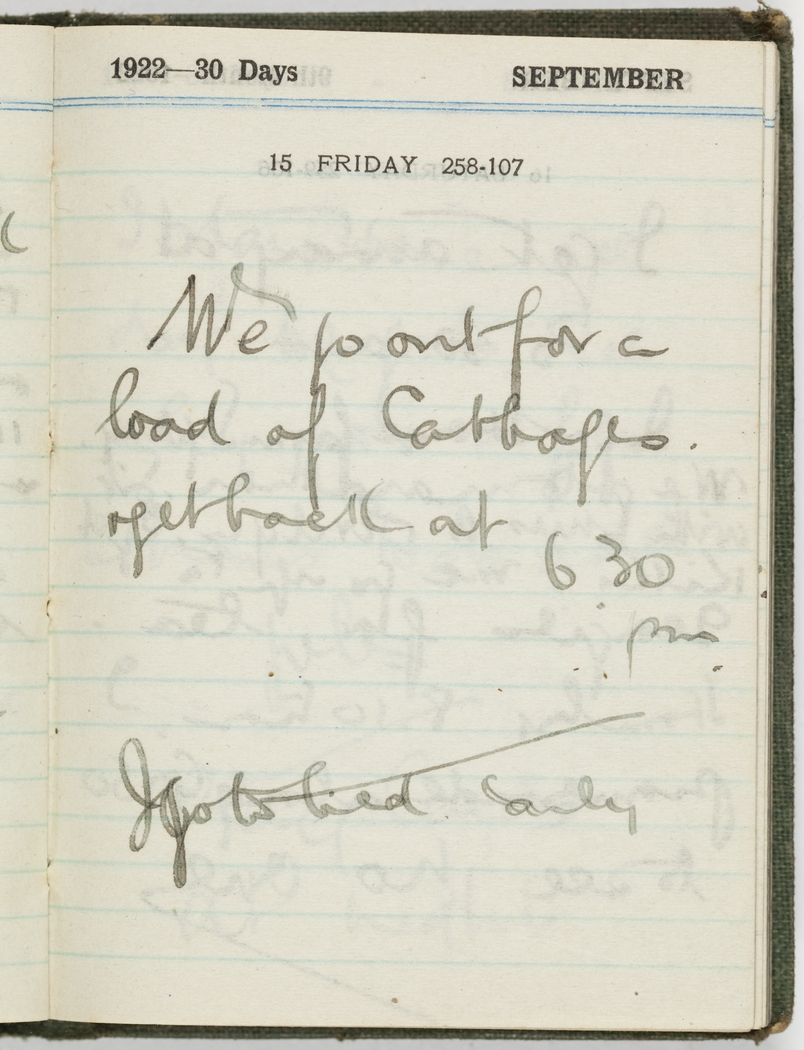 1922—30 Days SEPTEMBER
15 FRIDAY 258-107
We go out for a
load of Cabbages.
& get back at
6 30
pm
I go to bed early